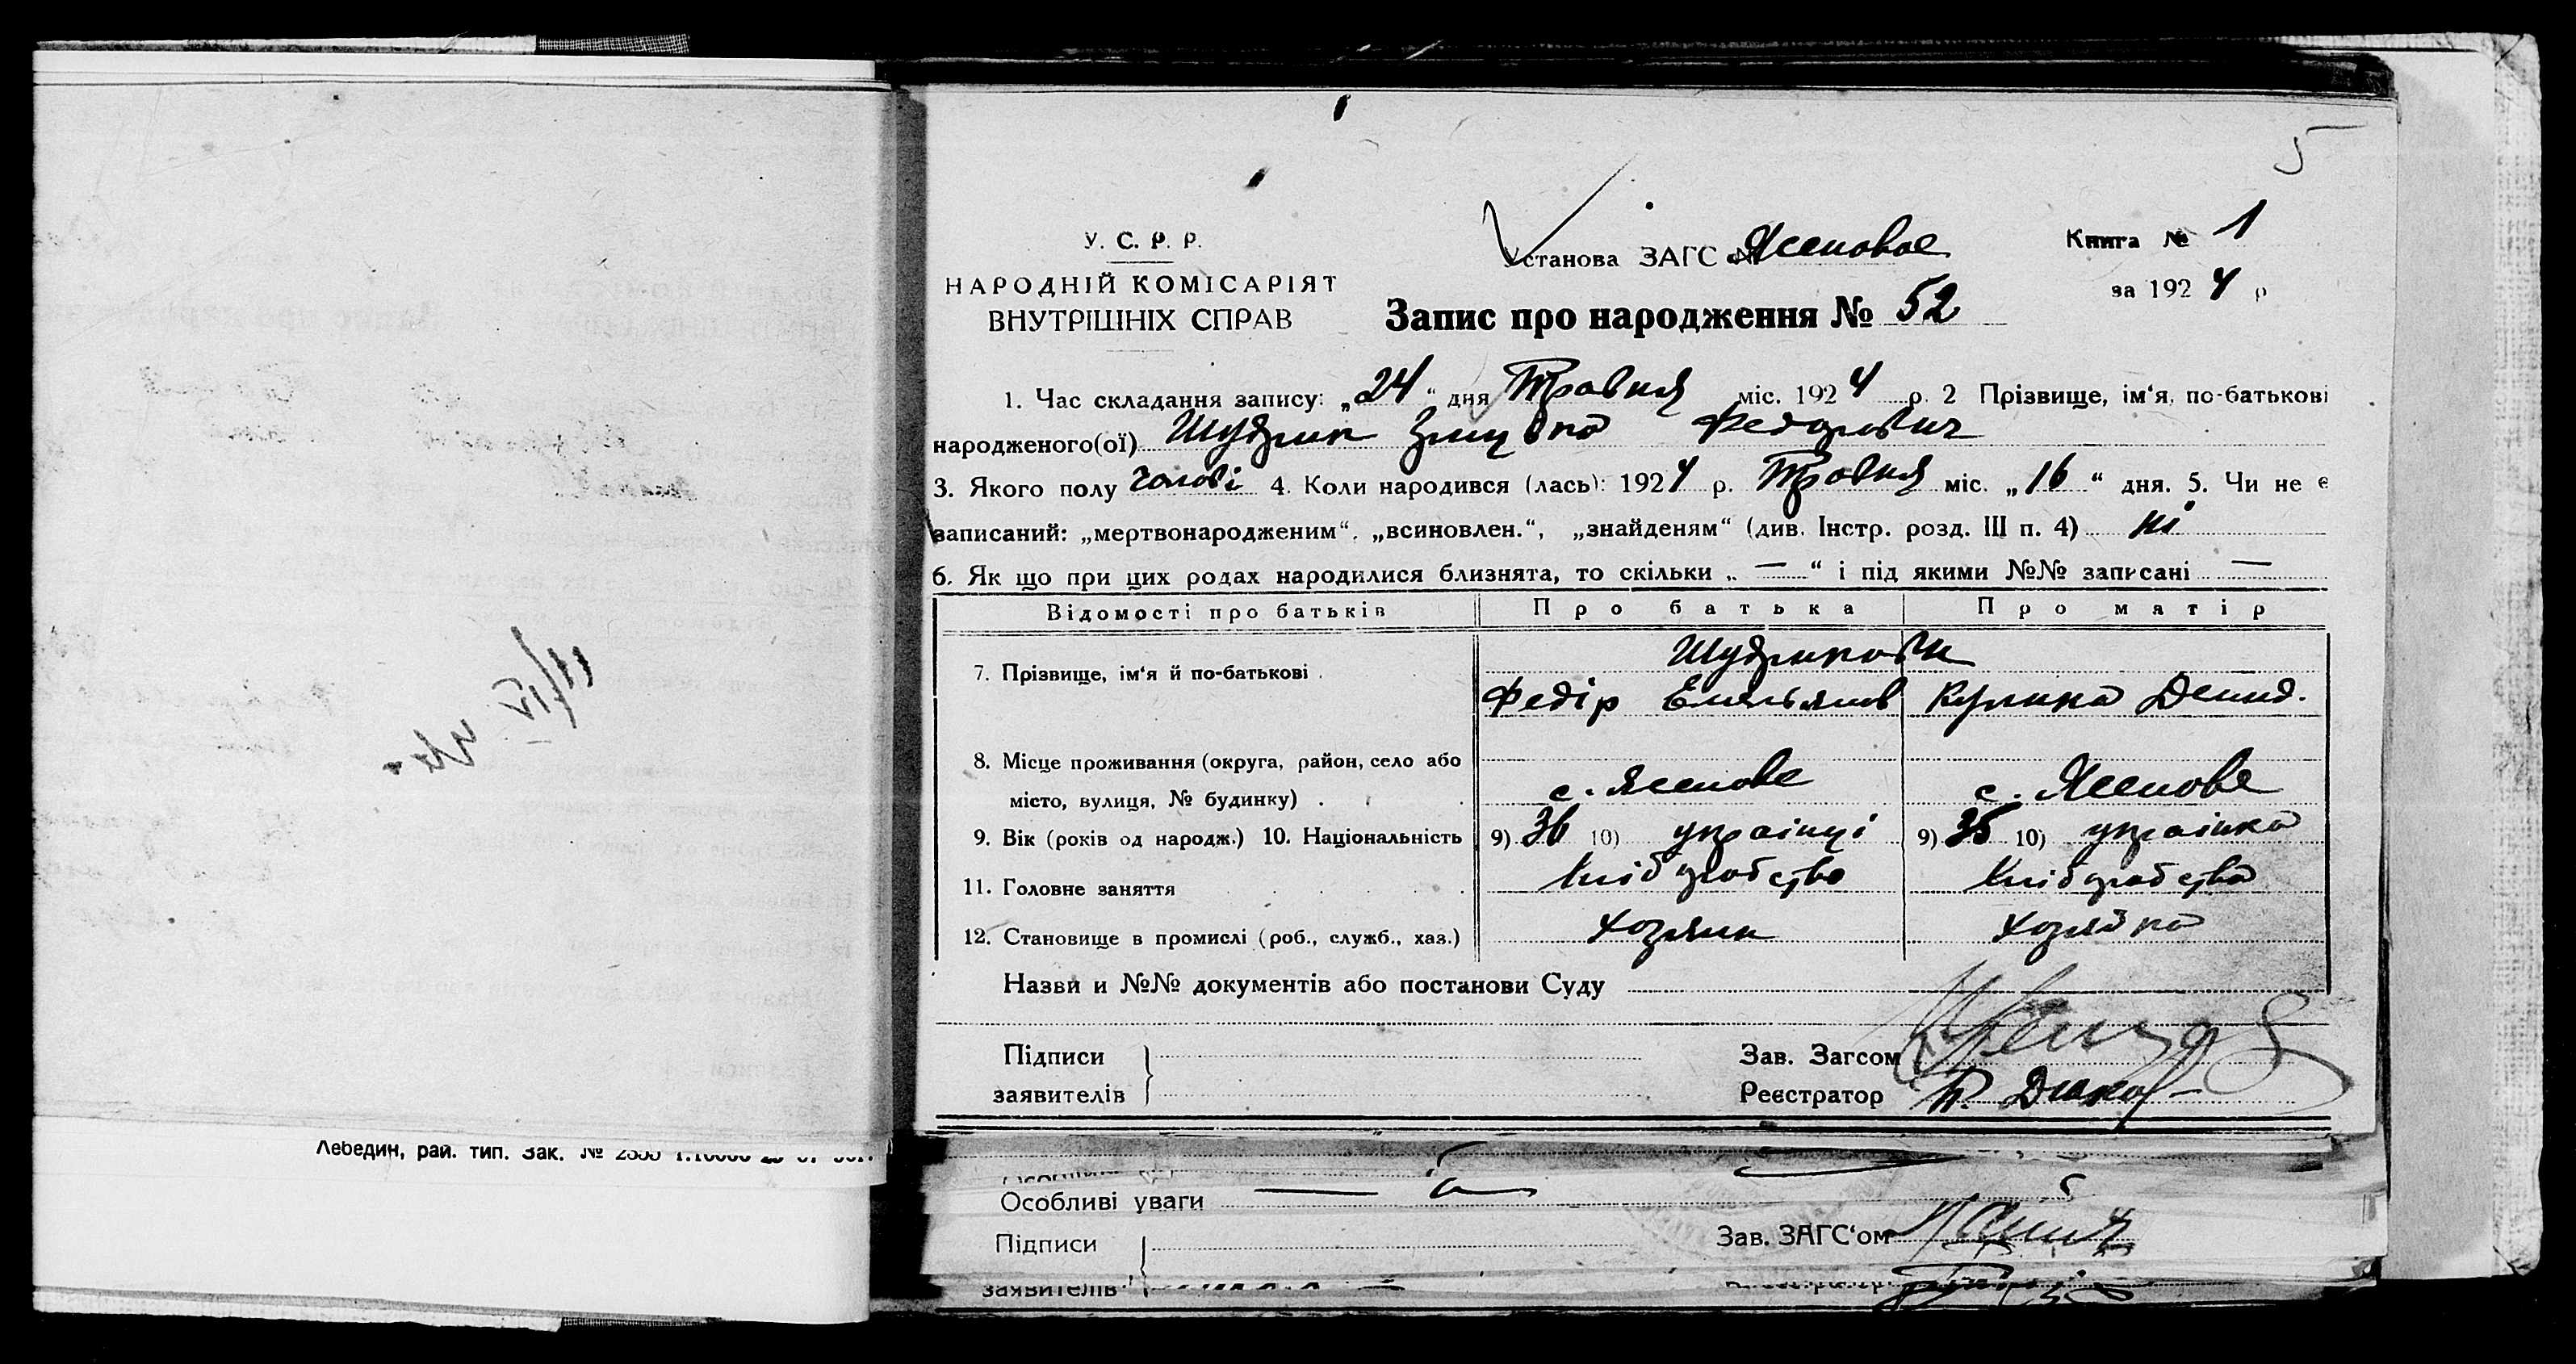 5
У. С. Р. Р.
НАРОДНІЙ КОМІСАРІЯТ
ВНУТРІШНІХ СПРАВ
Установа ЗАГС № Ясеновое
Книга № 1
за 1924 р
Запис про народження № 52
1. Час складання запису: „24“ дня Травня міс. 1924 р. 2 Прізвище, ім‘я, по-батькові
народженого(ої) Федорович
3. Якого полу чолові 4. Коли народився (лась): 1924 р. Травня міс. „16“ дня. 5. Чи не є
записаний: „мертвонародженим“, „всиновлен.“, „знайденям“ (див. Інстр. розд. III п. 4) ні
6. Як що при цих родах народилися близнята, то скільки „ — “ і під якими №№ записані —
Відомості про батьків Про батька Про матір
7. Прізвище, ім‘я й по-батькові .
Федір Емельянов Кулина Демид.
8. Місце проживання (округа, район, село або
місто, вулиця, № будинку) . с. Ясенове с. Ясенове
9. Вік (років од народж.) 10. Національність 9) 36 10) українці 9) 35 10) українка
11. Головне заняття Хліборобство Хліборобство
12. Становище в промислі (роб., служб., хаз.) Хозяин Хозяйка
Назви и №№ документів або постанови Суду
Підписи
заявителів
Зав. Загсом
Реєстратор П.
Лебедин, рай. тип. Зак. №
Особливі уваги
Підписи
Зав. ЗАГС‘ом
заявителів